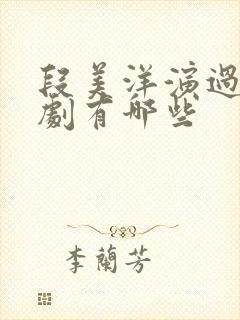 段美洋演過
劇有哪些
李蘭芳